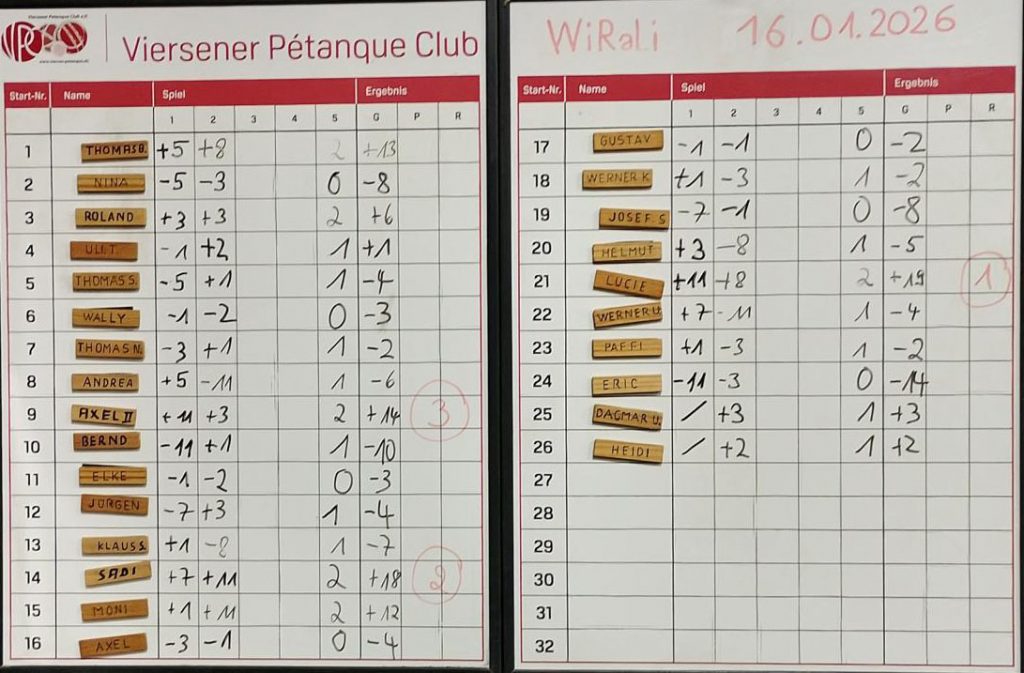 Viersener Pétanque Club e.V.
VPC
www.viersener-petanque.de
Viersener Pétanque Club
Start-Nr. Name Spiel Ergebnis
1 2 3 4 5 G P R
1 THOMAS B. +5 +8 2 +13
2 NINA -5 -3 0 -8
3 ROLAND +3 +3 2 +6
4 ULI T. -1 +2 1 +1
5 THOMAS S. -5 +1 1 -4
6 WALLY -1 -2 0 -3
7 THOMAS N. -3 +1 1 -2
8 ANDREA +5 -11 1 -6
9 AXEL II +11 +3 2 +14 3
10 BERND -11 +1 1 -10
11 ELKE -1 -2 0 -3
12 JÜRGEN -7 +3 1 -4
13 KLAUS S. +1 -8 1 -7
14 SADI +7 +11 2 +18 2
15 MONI +1 +11 2 +12
16 AXEL -3 -1 0 -4
WiRaLi 16.01.2026
Start-Nr. Name Spiel Ergebnis
1 2 3 4 5 G P R
17 GUSTAV -1 -1 0 -2
18 WERNER K +1 -3 1 -2
19 JOSEF S -7 -1 0 -8
20 HELMUT +3 -8 1 -5
21 LUCIE +11 +8 2 +19 1
22 WERNER U. +7 -11 1 -4
23 PAFFI +1 -3 1 -2
24 ERIC -11 -3 0 -14
25 DAGMAR U. / +3 1 +3
26 HEIDI / +2 1 +2
27
28
29
30
31
32